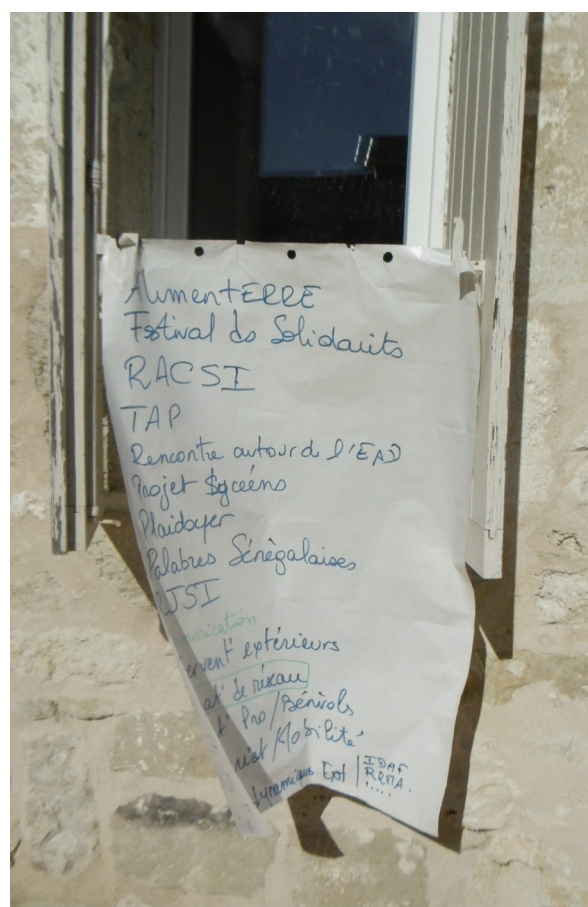 AlimenTERRE
Festival ds Solidarités
RACSI
TAP
Rencontre autour de l'EAD
Projet lycéens
Plaidoyer
Palabres Sénégalaises
RJSI
munication
ervent° extérieurs
at° de réseau
t° Pro/Bénévols
/Mobilité
dynamiques Ext | IDAF
....